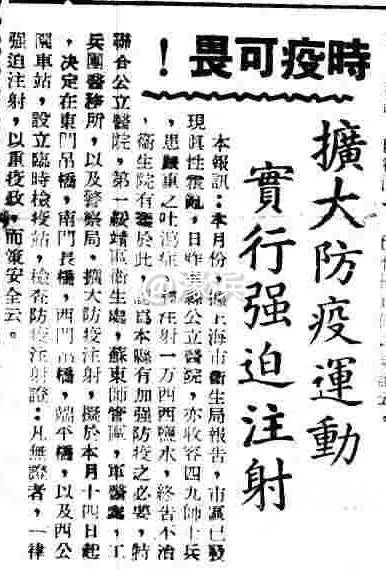 時疫可畏！
擴大防疫運動
實行强迫注射
本報訊：本月份，據上海市衛生局報告，市區已發
現眞性霍亂，日昨縣公立醫院，亦收容四九師士兵
，患嚴重之吐瀉症，注射一万西西鹽水，終告不治
，衛生院有鑒於此，認爲本縣有加强防疫之必要，特
聯合公立醫院，第一綏靖區衛生處，蘇東師管區，軍醫處，工
兵團醫務所，以及警察局，擴大防疫注射，擬於本月十四日起
，决定在東門吊橋，南門長橋，西門吊橋，端平橋，以及西公
園車站，設立臨時檢疫站，檢查防疫注射證：凡無證者，一律
强迫注射，以重疫政，而策安全云。